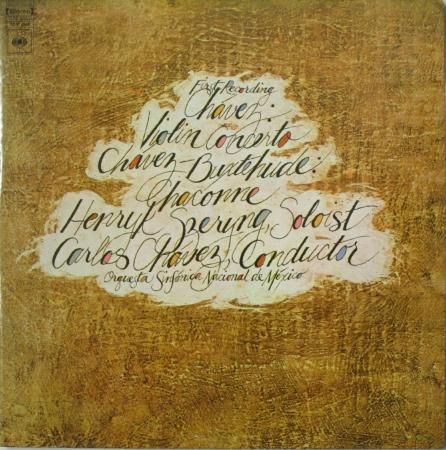 First Recording
Chávez:
Violin Concerto
Chávez-Buxtehude:
Chaconne
Henryk Szeryng, Soloist
Carlos Chávez, Conductor
Orquesta Sinfónica Nacional de México